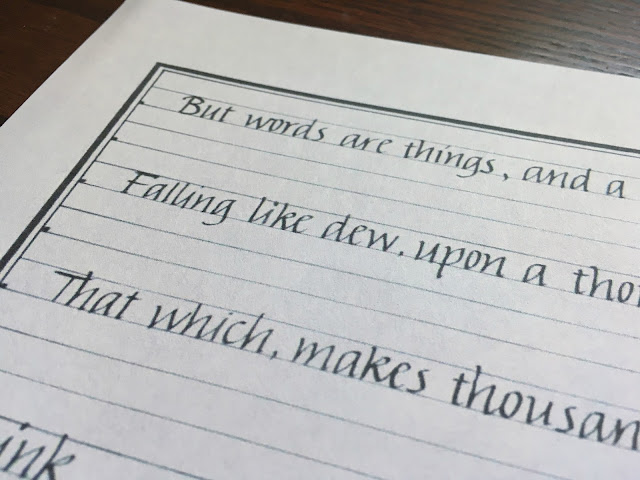 But words are things, and a
Falling like dew, upon a thou
That which, makes thousan
ink